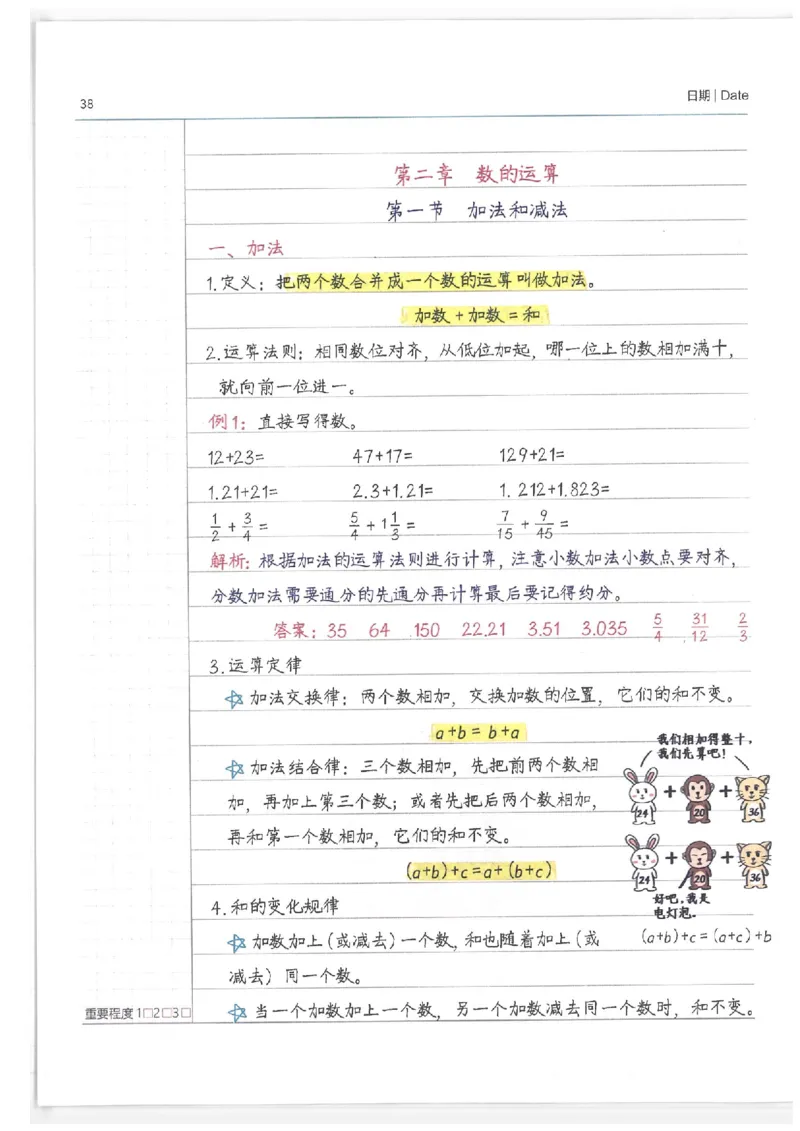 38
日期 | Date
第二章 数的运算
第一节 加法和减法
一、加法
1.定义：把两个数合并成一个数的运算叫做加法。
加数+加数=和
2.运算法则：相同数位对齐，从低位加起，哪一位上的数相加满十，
就向前一位进一。
例1：直接写得数。
12+23= 47+17= 129+21=
1.21+21= 2.3+1.21= 1.212+1.823=
1/2 + 3/4 = 5/4 + 1 1/3 = 7/15 + 9/45 =
解析：根据加法的运算法则进行计算，注意小数加法小数点要对齐，
分数加法需要通分的先通分再计算最后要记得约分。
答案：35 64 150 22.21 3.51 3.035 5/4 31/12 2/3
3.运算定律
☆ 加法交换律：两个数相加，交换加数的位置，它们的和不变。
a+b=b+a
我们相加得整十，
我们先算吧！
☆ 加法结合律：三个数相加，先把前两个数相
加，再加上第三个数；或者先把后两个数相加，
再和第一个数相加，它们的和不变。
(a+b)+c=a+(b+c)
24 + 20 + 36
24 + 20 + 36
好吧，我是
电灯泡。
(a+b)+c=(a+c)+b
4.和的变化规律
☆ 加数加上(或减去)一个数，和也随着加上(或
减去)同一个数。
☆ 当一个加数加上一个数，另一个加数减去同一个数时，和不变。
重要程度 1□2□3□